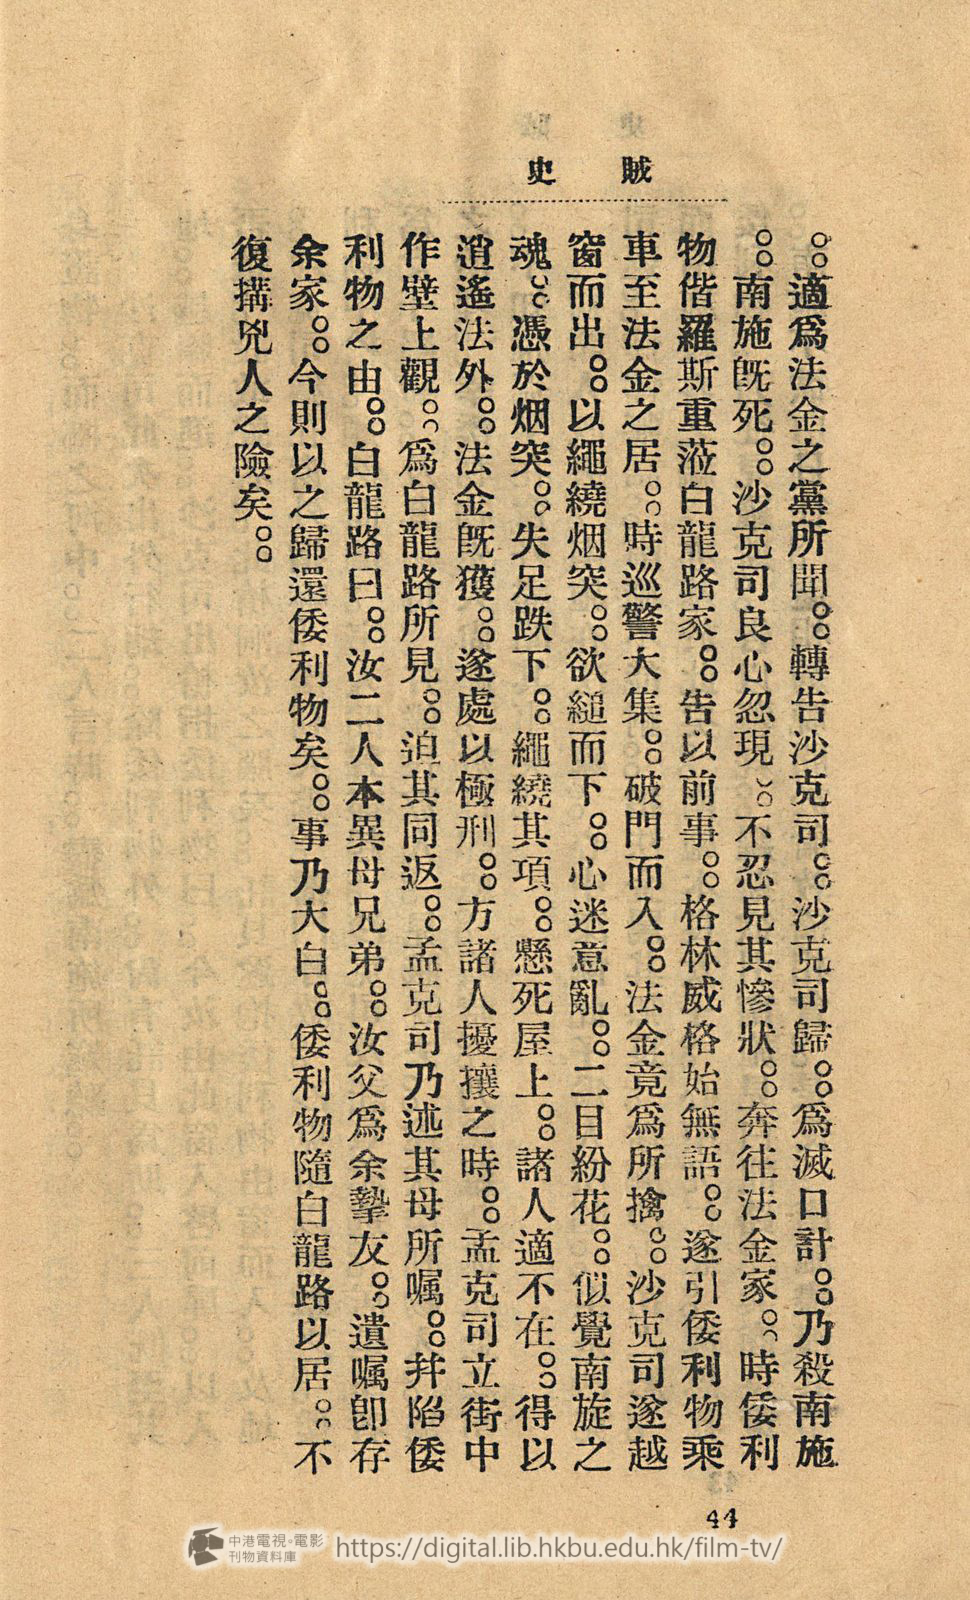 賊史
。。適爲法金之黨所聞。。轉告沙克司。。沙克司歸。。爲滅口計。。乃殺南施
。。南施旣死。。沙克司良心忽現。。不忍見其慘狀。。奔往法金家。。時倭利
物偕羅斯重蒞白龍路家。。告以前事。。格林威格始無語。。遂引倭利物乘
車至法金之居。。時巡警大集。。破門而入。。法金竟爲所擒。。沙克司遂越
窗而出。。以繩繞烟突。。欲縋而下。。心迷意亂。。二目紛花。。似覺南旋之
魂。。憑於烟突。。失足跌下。。繩繞其項。。懸死屋上。。諸人適不在。。得以
逍遙法外。。法金旣獲。。遂處以極刑。。方諸人擾攘之時。。孟克司立街中
作壁上觀。。爲白龍路所見。。迫其同返。。孟克司乃述其母所嘱。。幷陷倭
利物之由。。白龍路曰。。汝二人本異母兄弟。。汝父爲余摯友。。遺嘱卽存
余家。。今則以之歸還倭利物矣。。事乃大白。。倭利物隨白龍路以居。。不
復搆兇人之險矣。。
44
中港電視。電影
刊物資料庫
https://digital.lib.hkbu.edu.hk/film-tv/